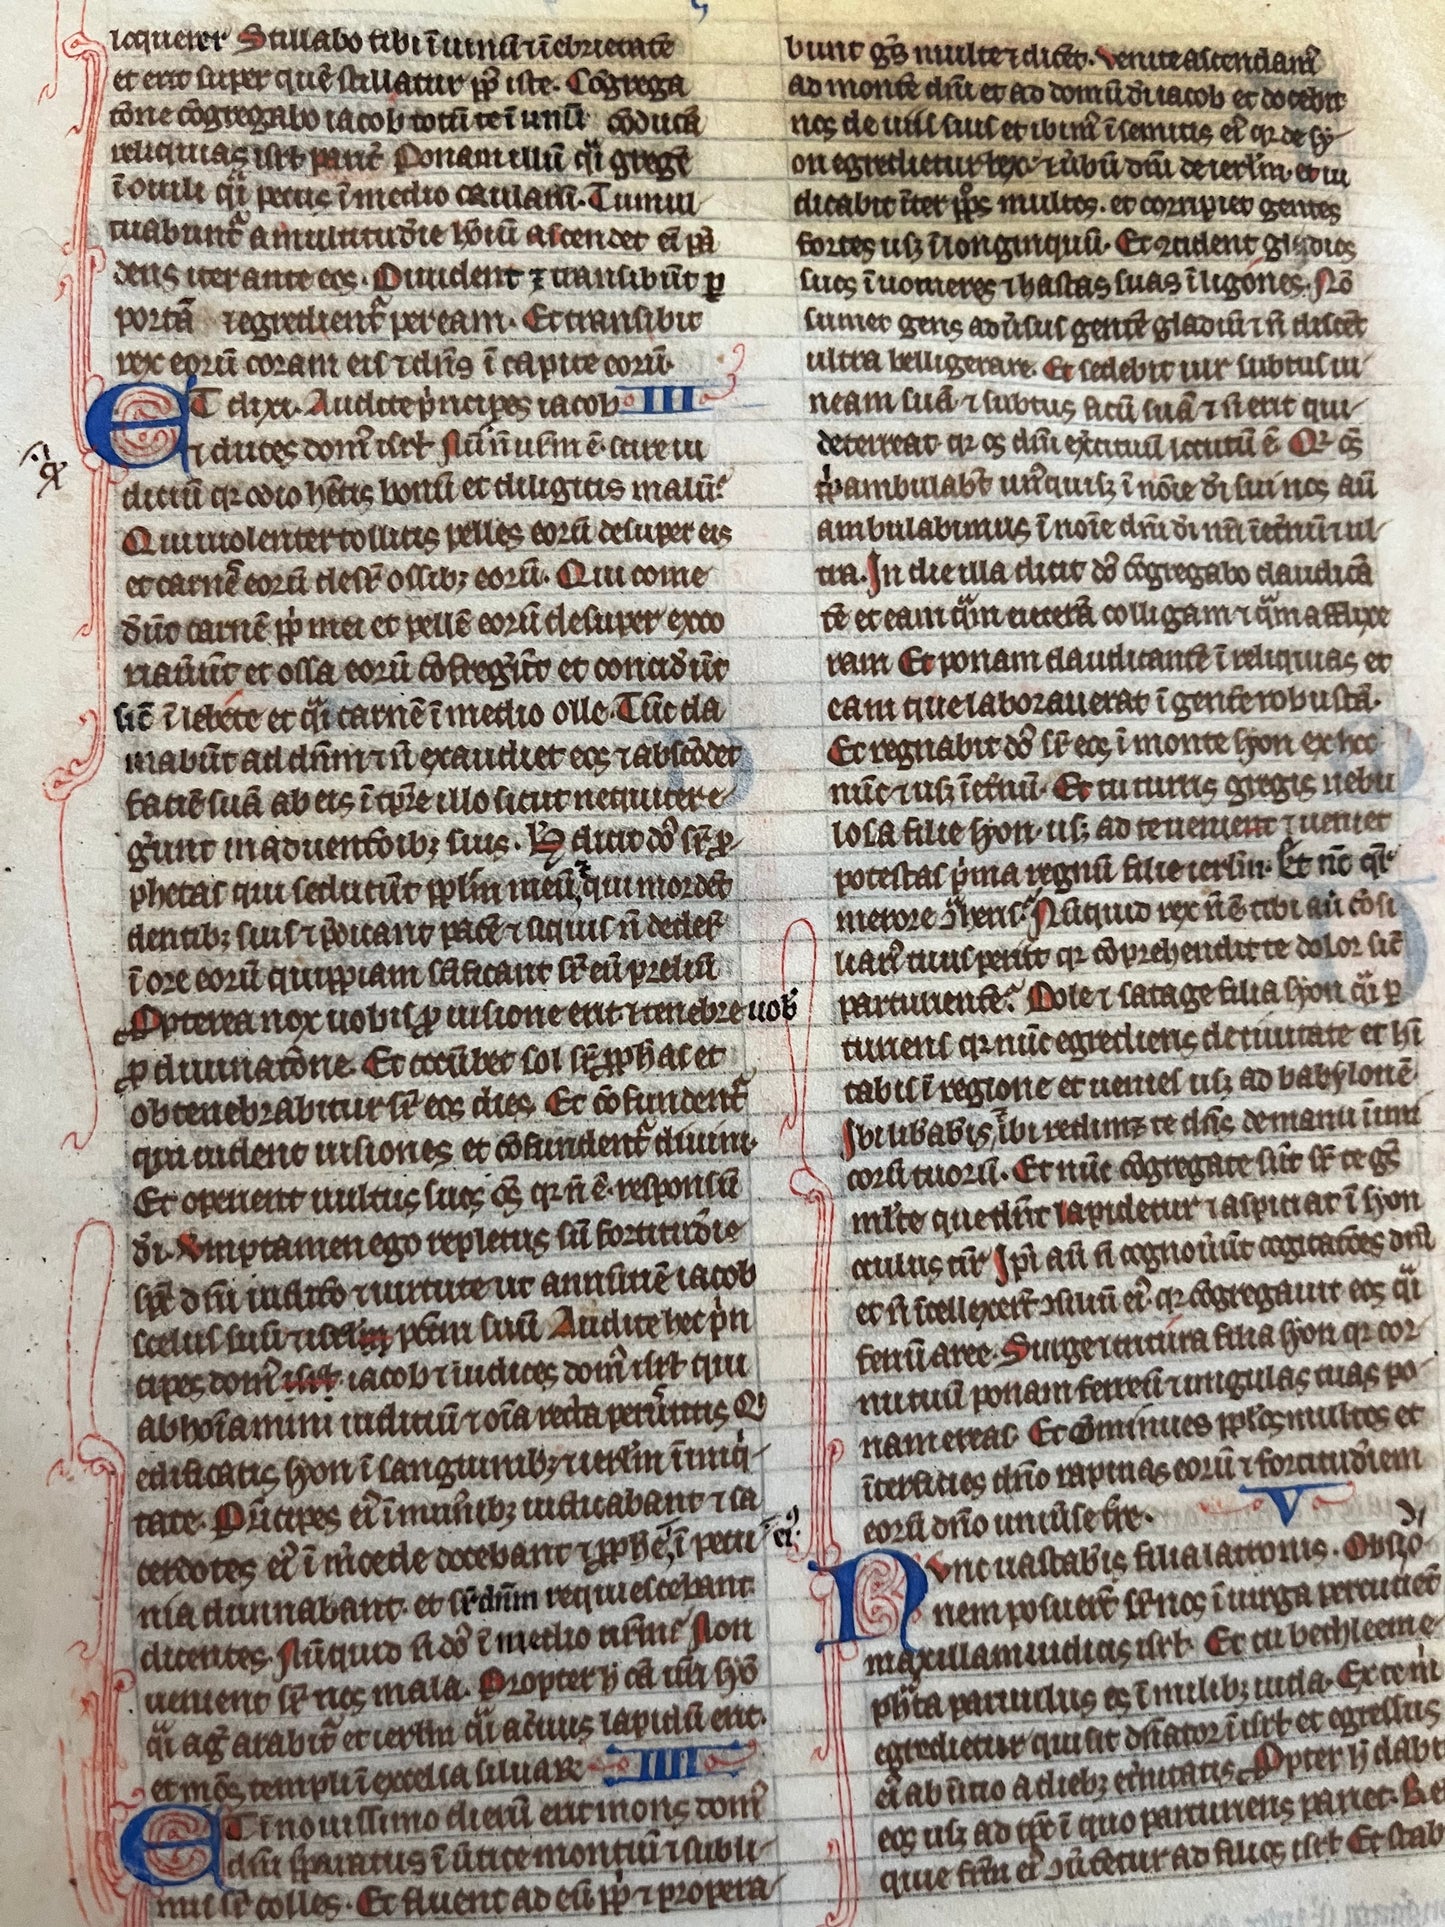 loquerer Stillabo tibi ī uinū ⁊ ī ebrietatē
et erit super quē stillatur pp̄ls iste. Cōgrega
tōne cōgregabo iacob totū te ī unū cōducā
reliquias isrl̄ parit̄ Ponam illū q̄i gregē
ī ouili q̄i pecus ī medio caularū. Tumul
tuabunt᷑ a multitudīe hoīū ascendet eī pā
dens iter ante eos. Diuident ⁊ transibūt ꝑ
portā ⁊ egredient᷑ per eam. Et transibit
rex eorū coram eis ⁊ dn̄s ī capite eorū.
ET dixi. Audite p̄ncipes iacob III
⁊ duces dom᷒ isrl̄ Nūq̄ n̄ ur̄m ē scire iu
diciū qr̄ odio hētis bonū et diligitis malū.
Qui uiolenter tollitis pelles eorū desuper eis
et carnē eorū desr̄ ossibꝫ eorū. Qui come
der̄ūt carnē pp̄li mei et pellē eorū desuper exco
riauer̄ūt et ossa eorū cōfreger̄ūt et concider̄ūt
sic̄ ī lebete et q̄i carnē ī medio olle. Tūc cla
mabūt ad dn̄m ⁊ n̄ exaudiet eos ⁊ abscōdet
faciē suā ab eis ī tp̄re illo sicut nequiter e
ger̄unt in aduentōibꝫ suis. H̄ dicit dn̄s sr̄ ꝓ
phetas qui seducūt pplm̄ meū, qui mordēt
dentibꝫ suis ⁊ p̄dicant pacē ⁊ siquis n̄ dederit̄
ī ore eorū quippiam sc̄ificant sr̄ eū preliū
Ꝓpterea nox uobis ꝓ uisione erit ⁊ tenebre uob᷒
ꝓ diuinatōne. Et occūbet sol sr̄ ꝓphās et
obtenebrabitur sr̄ eos dies. Et cōfundent᷑
qui uident uisiones et cōfundent᷑ diuini.
Et operient uultus suos oēs qr̄ n̄ ē responsū
dī. Verūptamen ego repletus sū fortitudīe
spū dn̄i iudicio ⁊ uirtute ut annūtiē iacob
scelus suū ⁊ isrl̄ pctm̄ suū Audite hec p̄n
cipes dom᷒ isrl̄ iacob ⁊ iudices dom᷒ isrl̄ qui
abhoīamini iudiciū ⁊ oīa recta peruertitis Q
edificatis syon ī sanguinibꝫ ⁊ ierl̄m ī iniq̄
tate. Prīcipes ei᷒ ī munibꝫ iudicabant ⁊ sa
cerdotes ei᷒ ī m̄cede docebant ⁊ ꝓphē ei᷒ ī pecu
nia diuinabant. et sr̄ dn̄m requiescebant
dicentes. Nūquid n̄ dn̄s ī medio nr̄m Non
uenient sr̄ nos mala. Propter h̄ cā ur̄i syō
q̄i ag᷑ arabit᷑ et ierl̄m q̄i aceruus lapidū erit.
et mōs templi ī excelsa siluaꝝ IIII
ET ī nouissimo dierū erit mons dom᷒
dn̄i p̄paratus ī ūtice montiū ⁊ subli
mis sr̄ colles. Et fluent ad eū pp̄li ⁊ propera
bunt gēs multe ⁊ dicēt. Venite ascendam᷒
ad montē dn̄i et ad domū dī iacob et docebit
nos de uiis suis et ibim᷒ ī semitis ei᷒ qr̄ de sy
on egredietur lex ⁊ ūbū dn̄i de ierl̄m. et iu
dicabit īter pp̄los multos. et corripiet gentes
fortes usꝫ ī longinquū. Et ⁊cident gladios
suos ī uomeres ⁊ hastas suas ī ligones. Nō
sumet gens aduersus gentē gladiū ⁊ n̄ discēt
ultra belligerare. Et sedebit uir subtus ui
neam suā ⁊ subtus ficū suā ⁊ n̄ erit qui
deterreat qr̄ os dn̄i exercituū locutū ē. Qr̄ oēs
pp̄li ambulabūt un᷒quisꝫ ī noīe dī sui nos aū
ambulabimus ī noīe dn̄i dī nr̄i ī et̄nū ⁊ ul
tra. In die illa dicit dn̄s cōgregabo claudicā
tē et eam q̄m eiecerā colligam ⁊ q̄m afflixe
ram Et ponam claudicantē ī reliquias et
eam que laborauerat ī gentē robustā.
Et regnabit dn̄s sr̄ eos ī monte syon ex hoc
nūc ⁊ usꝫ ī et̄nū. Et tu turris gregis nebu
losa filie syon usꝫ ad te ueniet ⁊ ueniet
potestas p̄ma regnū filie ierl̄m. Et nc̄ q̄re
merore ꝯtrheris. Nūquid rex n̄ ē tibi aū cōsi
liari᷒ tuus periit qr̄ cōprehendit te dolor sic̄
parturientē. Dole ⁊ satage filia syon q̄i ꝑ
turiens qr̄ nūc egredieris de ciuitate et hī
tabis ī regione et uenies usꝫ ad babylonē
Ibi libabis, ibi redimet te dn̄s de manu īimi
corū tuorū. Et nūc cōgregate sūt sr̄ te gēs
mlt̄e que dn̄t lapidetur ⁊ aspiciat ī syon
oculus nr̄ Ipī aū n̄ cognouer̄ūt cogitatōes dn̄i
et n̄ ītellexer̄t ꝯsiliū ei᷒ qr̄ cōgregauit eos q̄i
fenū aree. Surge ⁊ tritura filia syon qr̄ cor
nu tuū ponam ferreū ⁊ ungulas tuas po
nam ereas. Et cōminues pplōs multos et
īterficies dn̄o rapinas eorū ⁊ fortitudīem
eorū dn̄o uniuerse tr̄e. V
Nvnc uastabis filia latronis. Obsidio
nem posuer̄t sr̄ nos ī uirga percutient
maxillam iudicis isrl̄. Et tu bethleem e
phrāta paruulus es ī milibꝫ iuda. Ex te m̄
egredietur qui sit dn̄ator ī isrl̄ et egressus
ei᷒ ab initio a diebꝫ et̄nitatis. Ꝓpter h̄ dabit
eos usꝫ ad tp̄s ī quo parturiens pariet. Reli
quie fr̄m ei᷒ ꝯūtētur ad filios isrl̄ Et stab